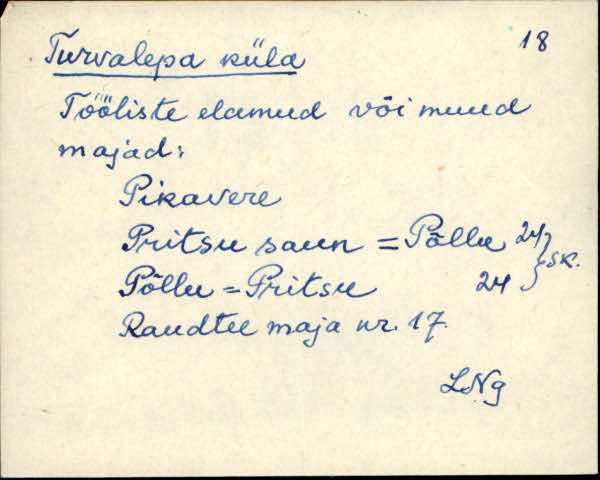 18
Turvalepa küla
Tööliste elamud või muud
majad:
Pikavere
Pritsu saun = Põllu 24
Põllu = Pritsu 24 } SK.
Raudtee maja nr. 17.
LNg